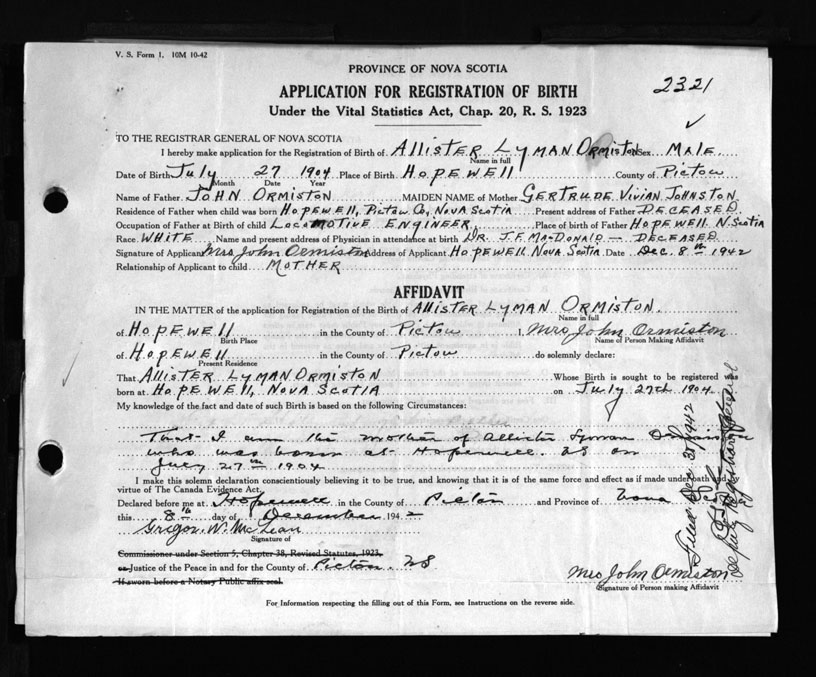 V. S. Form 1. 10M 10-42
PROVINCE OF NOVA SCOTIA
APPLICATION FOR REGISTRATION OF BIRTH
2321
Under the Vital Statistics Act, Chap. 20, R. S. 1923
TO THE REGISTRAR GENERAL OF NOVA SCOTIA
I hereby make application for the Registration of Birth of ALLISTER LYMAN ORMISTON Sex MALE
Name in full
Date of Birth July 27 1904 Place of Birth HOPEWELL County of PICTOU
Month Date Year
Name of Father JOHN ORMISTON MAIDEN NAME of Mother GERTRUDE VIVIAN JOHNSTON
Residence of Father when child was born HOPEWELL, PICTOU Co, NOVA SCOTIA Present address of Father DECEASED
Occupation of Father at Birth of child LOCOMOTIVE ENGINEER, Place of birth of Father HOPEWELL N. SCOTIA
Race WHITE Name and present address of Physician in attendance at birth DR. J.F. MACDONALD - DECEASED
Signature of Applicant Mrs John Ormiston Address of Applicant HOPEWELL NOVA SCOTIA Date Dec. 8th 1942
Relationship of Applicant to child MOTHER
AFFIDAVIT
IN THE MATTER of the application for Registration of the Birth of ALLISTER LYMAN ORMISTON.
Name in full
of HOPEWELL in the County of PICTOU I, Mrs John Ormiston
Birth Place Name of Person Making Affidavit
of HOPEWELL in the County of PICTOU do solemnly declare:
Present Residence
That ALLISTER LYMAN ORMISTON Whose Birth is sought to be registered was
born at HOPEWELL, NOVA SCOTIA on July 27th 1904.
My knowledge of the fact and date of such Birth is based on the following Circumstances:
That I am the mother of Allister Lyman Ormiston
who was born at Hopewell NS on
July 27th 1904
I make this solemn declaration conscientiously believing it to be true, and knowing that it is of the same force and effect as if made under oath and by
virtue of The Canada Evidence Act.
Declared before me at Hopewell in the County of Pictou and Province of Nova Scotia
this 8th day of December 1942
Grigor W. McLean
Signature of
Commissioner under Section 5, Chapter 38, Revised Statutes, 1923,
or Justice of the Peace in and for the County of Pictou NS
If sworn before a Notary Public affix seal.
Mrs John Ormiston
Signature of Person making Affidavit
For Information respecting the filling out of this Form, see Instructions on the reverse side.
Filed Dec 31 1942
Deputy Registrar General